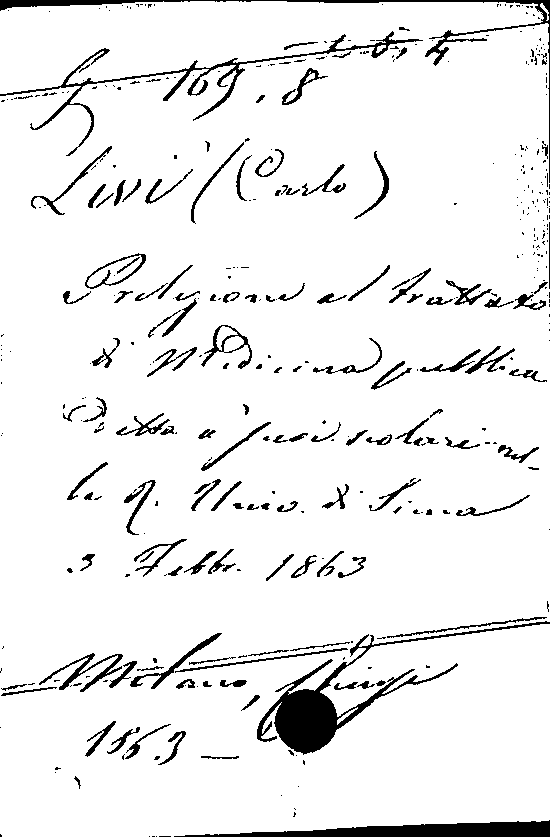 G. 169.8
Livi (Carlo)
Prelezione al trattato
di Medicina pubblica
Detta a' suoi scolari nel-
la R. Univ. di Siena
3 Febbr. 1863
Milano, Chiusi
1863 —